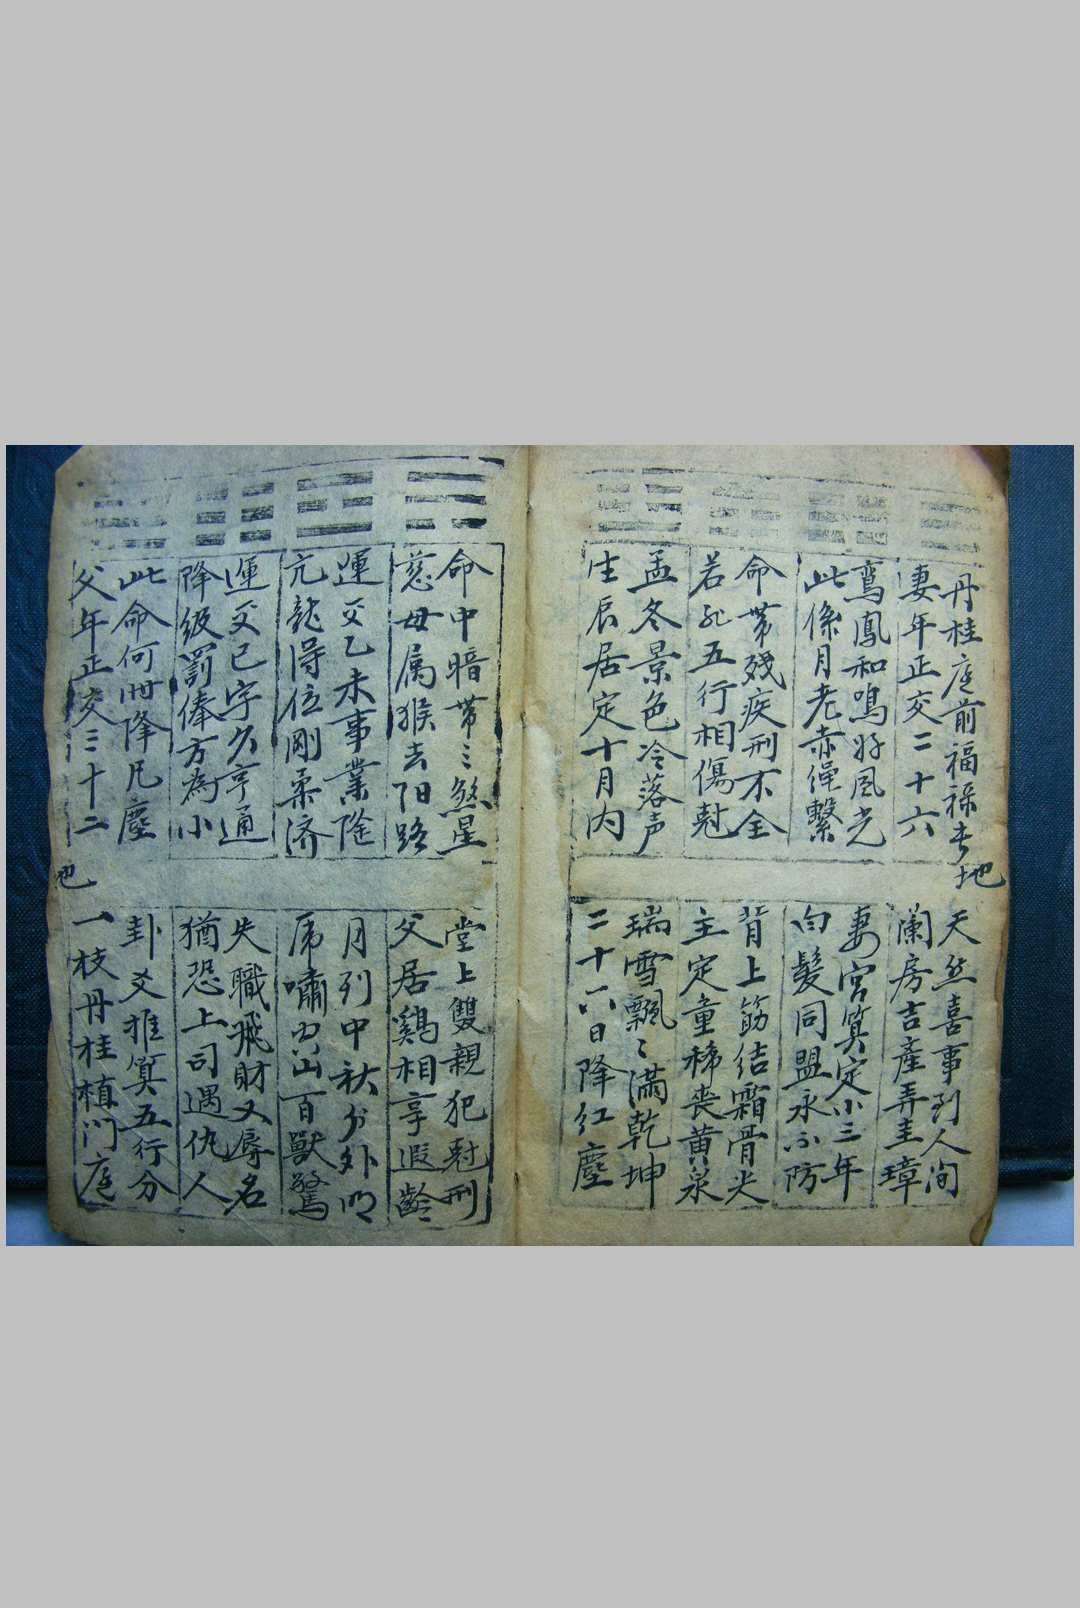 丹桂庭前福禄地
天然喜事到人间
妻年正交二十六
蘭房吉產弄圭璋
鸾鳳和鳴好風光
妻宮算定小三年
此係月老赤繩繫
白髮同盟永不防
命帶残疾刑不全
背上筋结霜骨尖
若非五行相傷尅
主定童稀喪黄泉
孟冬景色冷落声
瑞雪飄〻滿乾坤
生辰居定十月内
二十六日降红塵
命中暗帶三煞星
堂上雙親犯尅刑
慈母属猴去阳路
父居鷄相享遐齡
運交乙未事業隆
月到中秋分外明
亢龍得位剛柔济
虎嘯出山百獸驚
運交巳字欠亨通
失職飛財又辱名
降級罰俸方為小
猶恐上司遇仇人
此命何世降凡塵
卦爻推算五行分
父年正交三十二
一枝丹桂植门庭